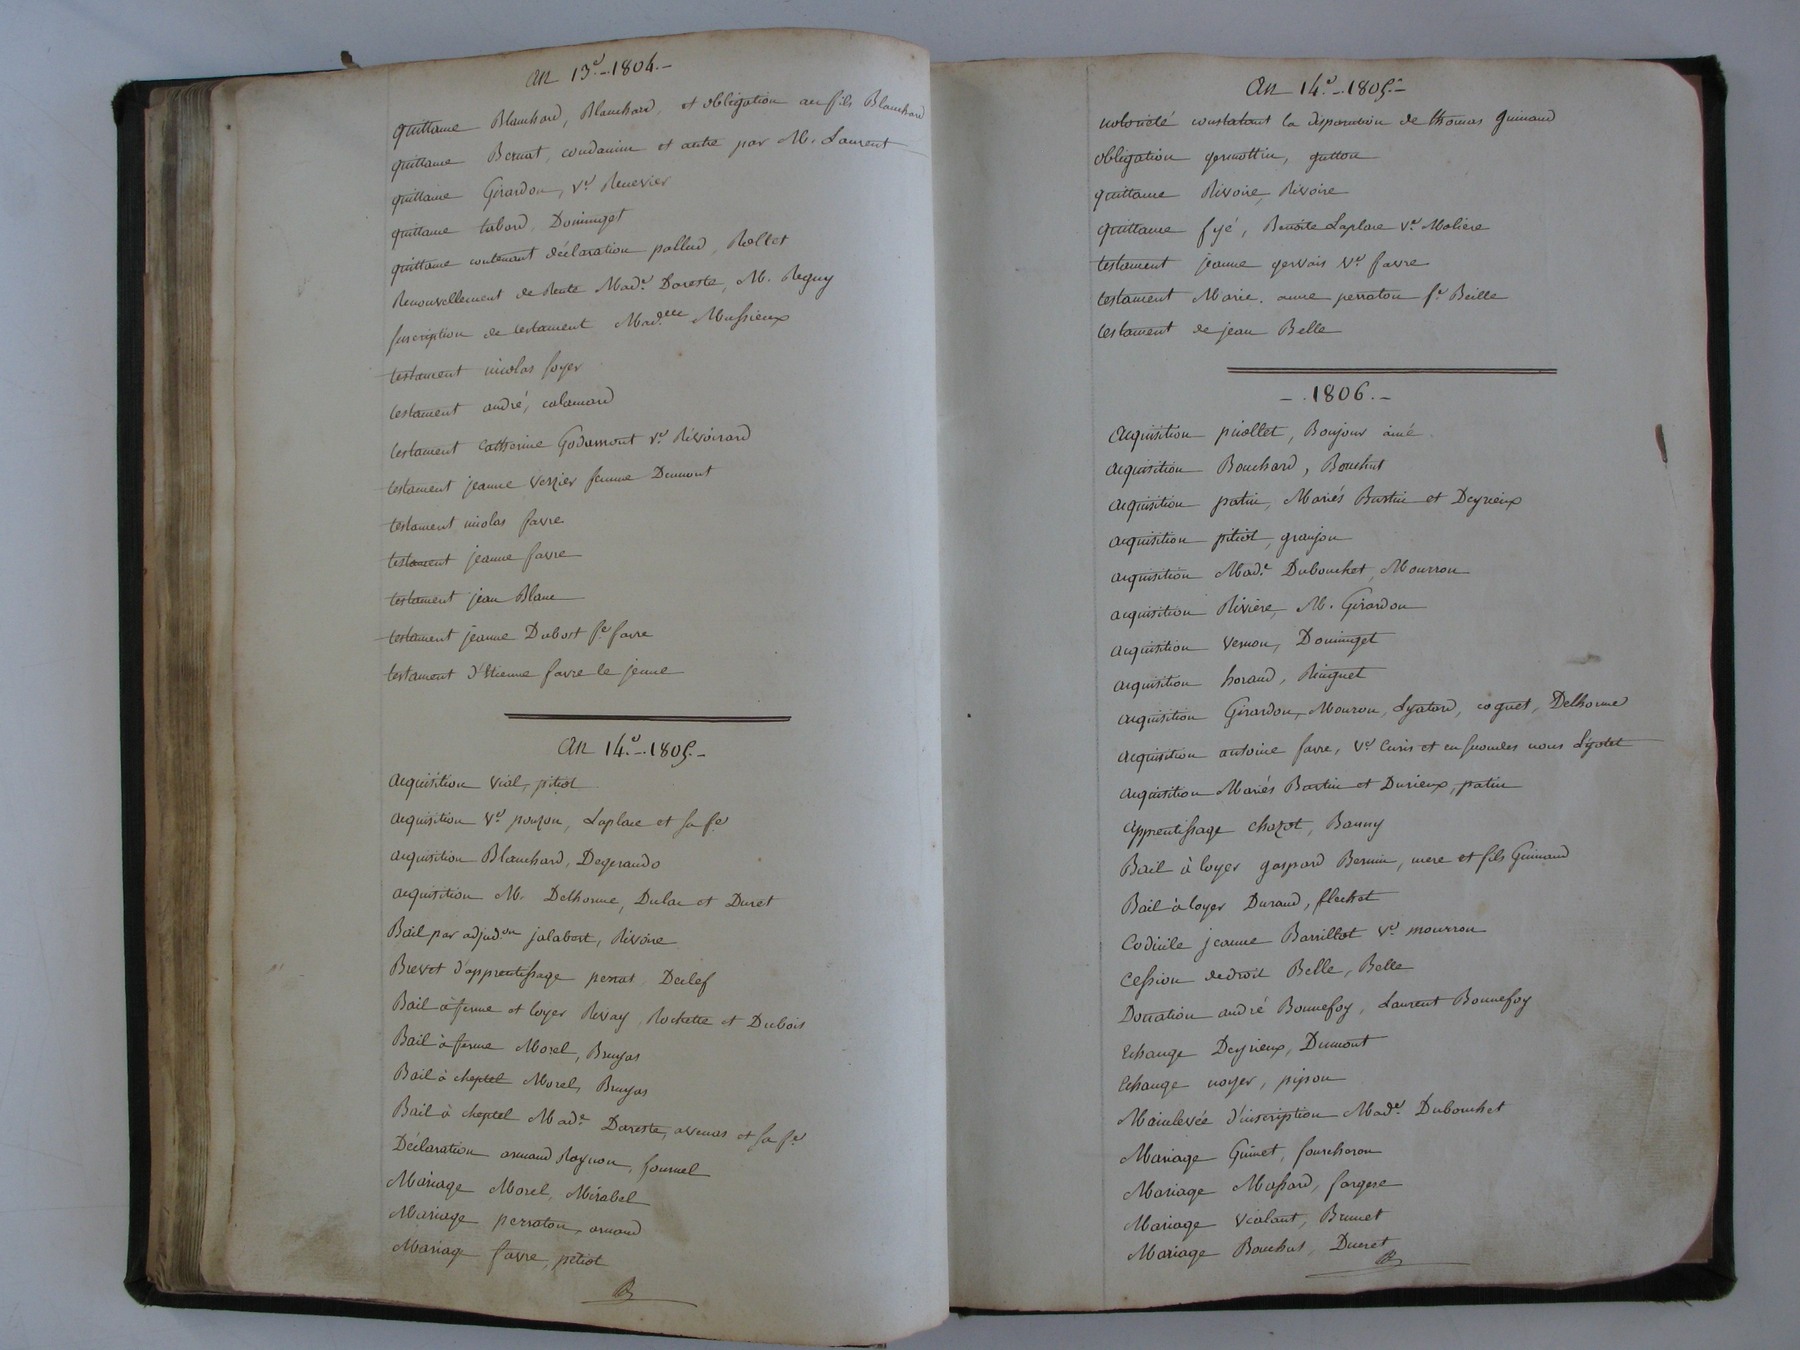 an 13.e - 1804. -
quittance Blanchard, Blanchard, et obligation au fils Blanchard
quittance Bernat, condamin et autre par M. Laurent
quittance Girardon, Ve Renevier
quittance tabard, Dominget
quittance contenant déclaration pallud, Rollet
Renouvellement de Rente Made Dareste, M. Reguy
suscription de testament Mad.elle Mussieux
testament nicolas foyer
testament andré, calamard
testament catherine Godumont Ve Rivoirard
testament jeanne verzier femme Dumont
testament nicolas favre
testament jeanne favre
testament jean Blanc
testament jeanne Dubost fe favre
testament d'Etienne favre le jeune
an 14.e - 1805. -
acquisition vial, pitiot
acquisition Ve ponson, Laplace et sa fe
acquisition Blanchard, Degerando
acquisition M. Delhorme, Dulac et Duret
Bail par adjud.on jalabert, Rivoire
Brevet d'apprentissage perrat, Decley
Bail à ferme et loyer Rivay, Rochette et Dubois
Bail à ferme Morel, Bruyas
Bail à cheptel Morel, Bruyas
Bail à cheptel Made Dareste, avenas et sa fe
Déclaration armand Raynon, fournel
Mariage Morel, Mirabel
Mariage perraton, armand
Mariage favre, pitiot
an 14.e - 1805. -
notorieté constatant la disparution de thomas guinand
obligation germottin, gutton
quittance Rivoire, Rivoire
quittance fyé, Benoite Laplace Ve Molière
testament jeanne gervais Ve favre
testament Marie. anne perraton fe Beille
testament de jean Belle
- . 1806. -
acquisition priollet, Boujour ainé
acquisition Bouchard, Bouchut
acquisition patin, Mariés Burtin et Deyrieux
acquisition pitiot, granjon
acquisition Made Dubouchet, Mourron
acquisition Rivière, M. Girardon
acquisition vernon, Dominget
acquisition horand, Ringuet
acquisition Girardon, Mouron, Lyatard, coquet, Delhorme
acquisition antoine favre, Ve Curis et en secondes noces Lyotet
acquisition Mariés Burtin et Durieux, patin
apprentissage chazot, Banny
Bail à loyer gaspard Bernin, mere et fils Guinand
Bail à loyer Durand, flechet
Codicile jeanne Barrillot Ve mourron
Cession de droit Belle, Belle
Donation andré Bonnefoy, Laurent Bonnefoy
Echange Deyrieux, Dumont
Echange noyer, pipon
Mainlevée d'inscription Made Dubouchet
Mariage Guinet, fourcheron
Mariage Massard, fargere
Mariage vialant, Brunet
Mariage Bouchut, Ducret